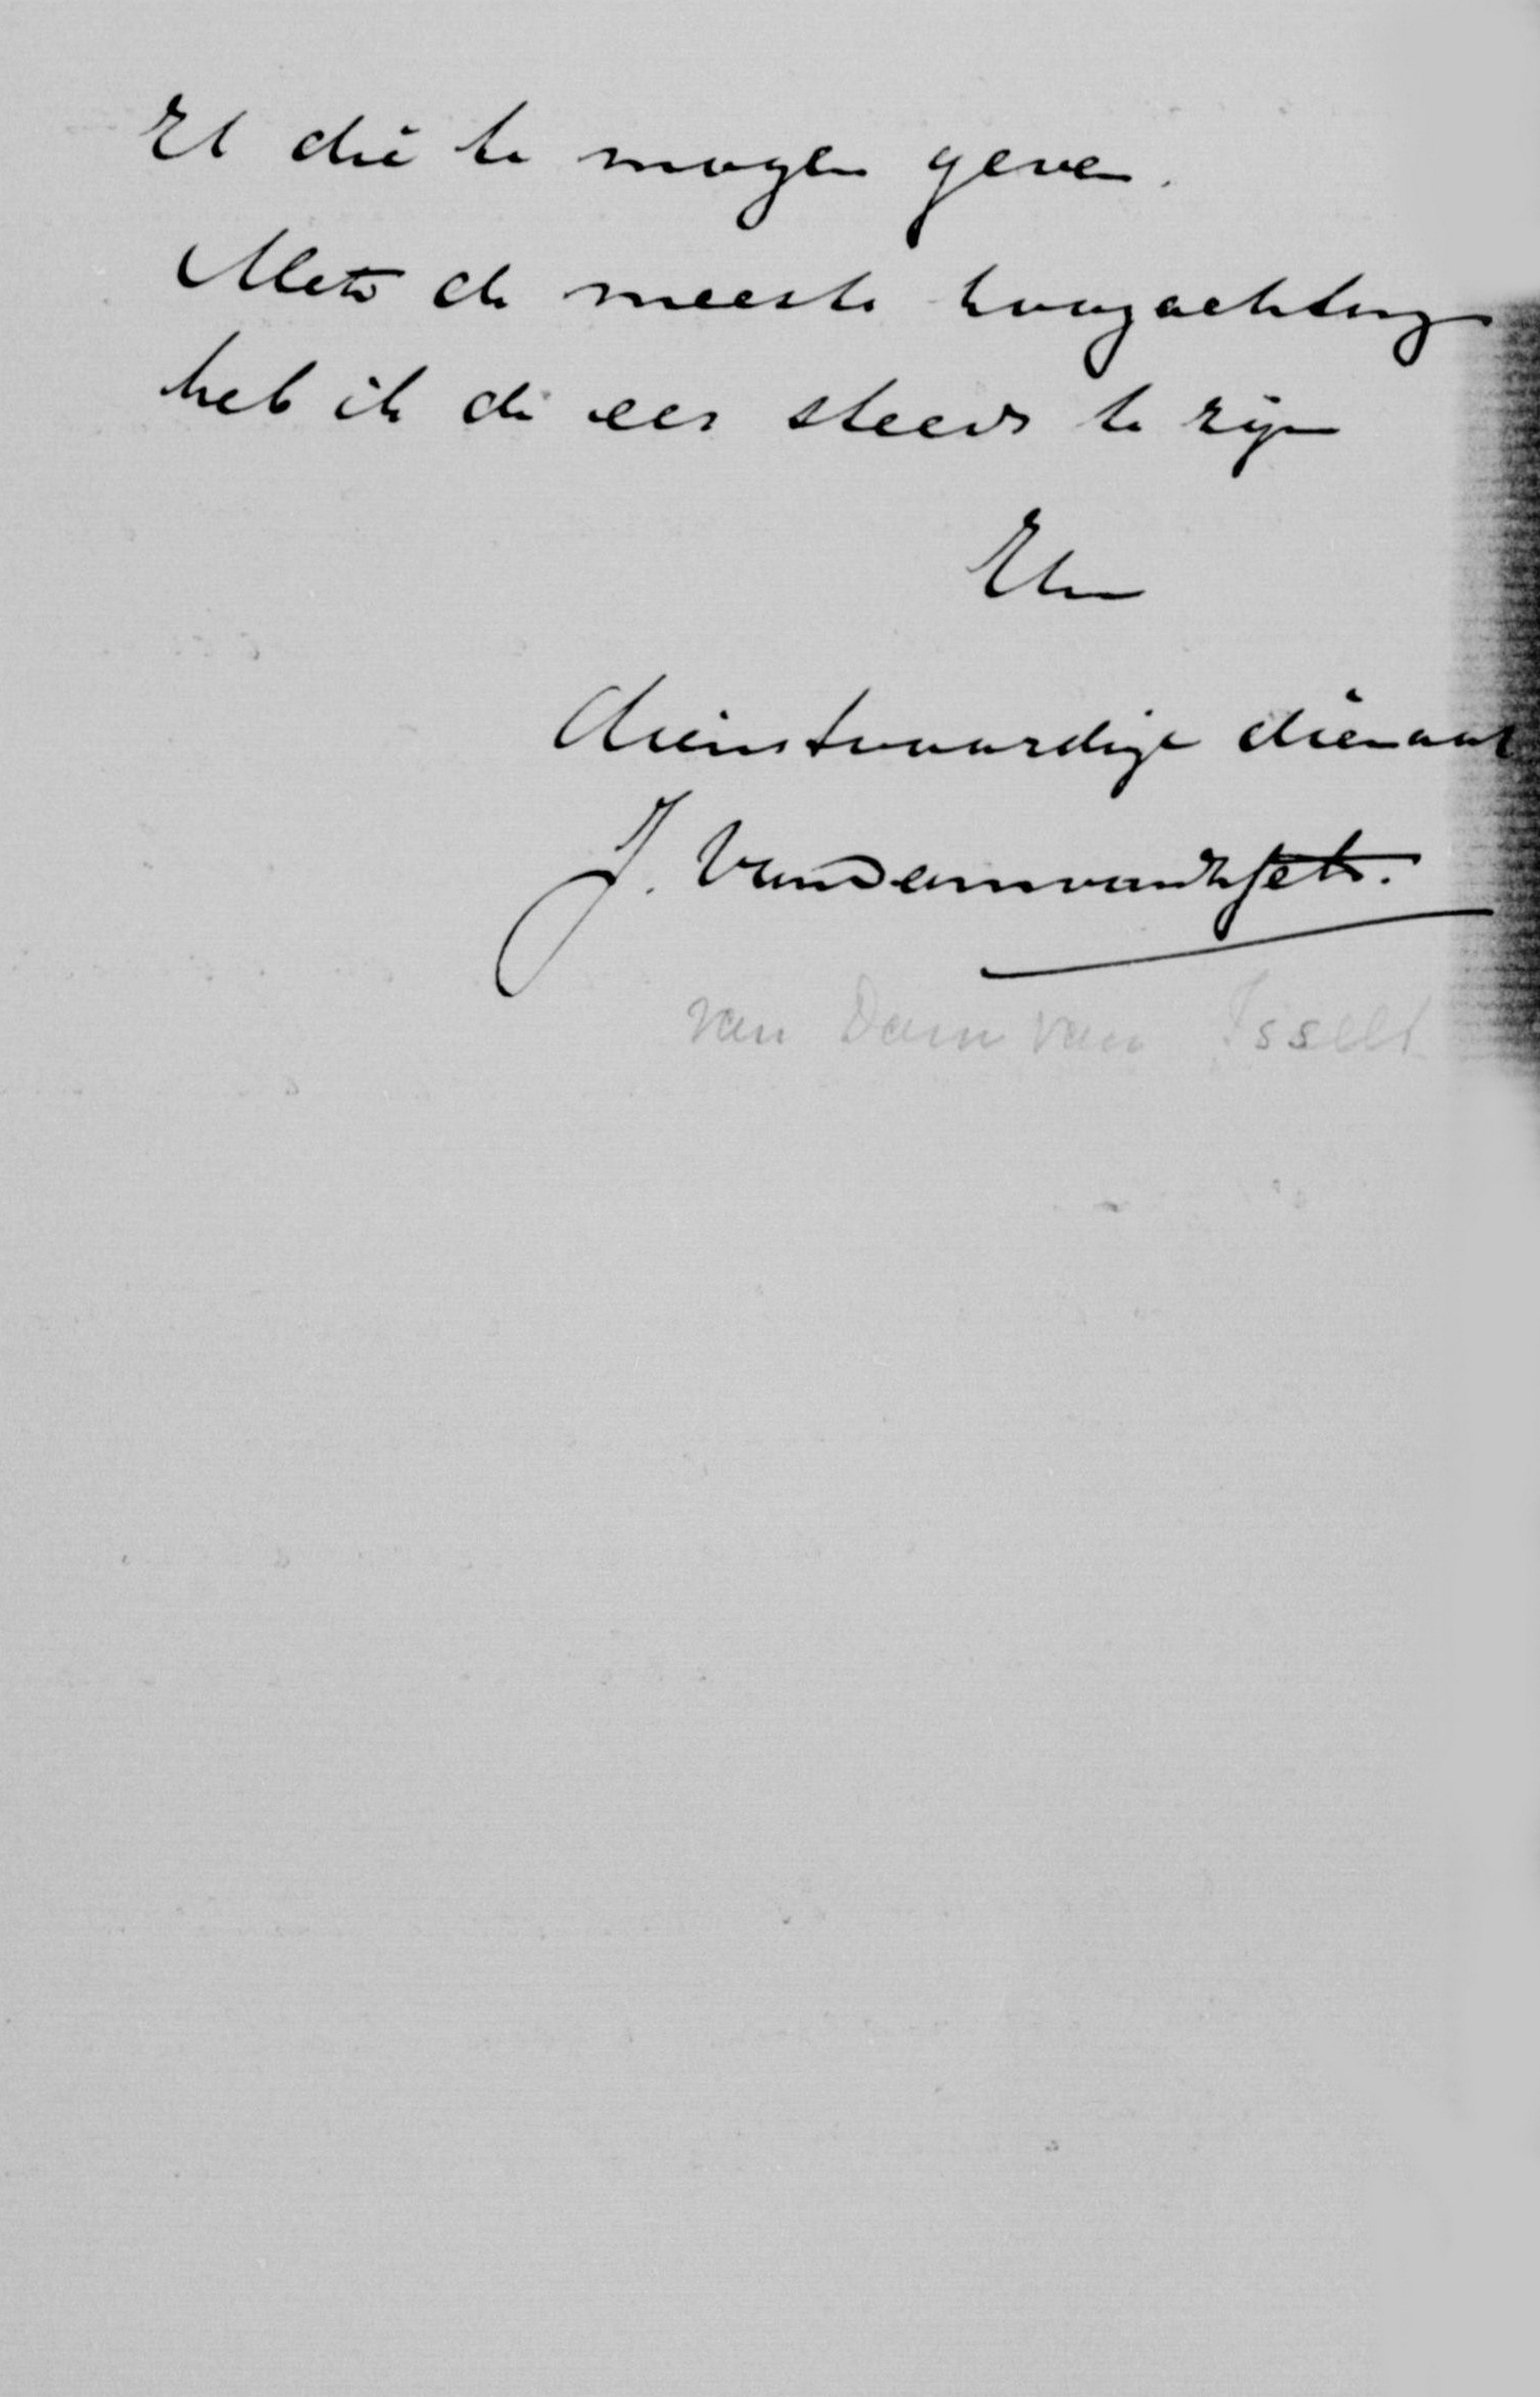 El die te mogen geven.
Met de meeste hoogachting
heb ik de eer steeds te zijn
Elw
dienstvaardige dienaar
J. VanDamvanIsselt.
van Dam van Isselt